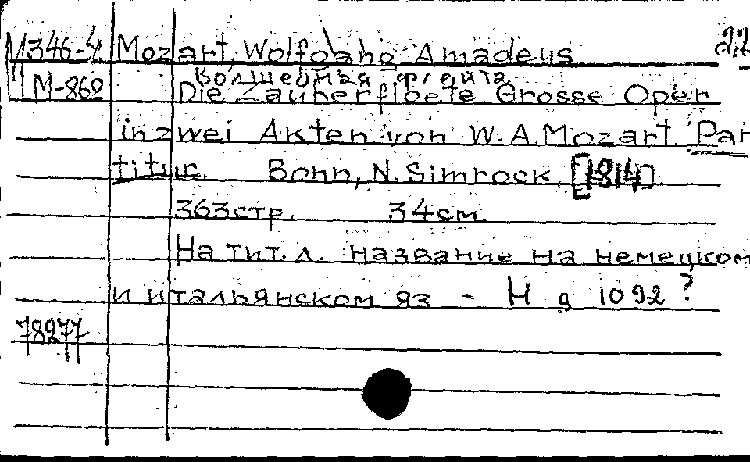 М346-4 Mozart, Wolfgang Amadeus
M-860 Волшебная флейта
Die Zauberfloete Grosse Oper
in zwei Akten von W.A.Mozart. Par
titur. Bonn, N. Simrock, [1814]
363стр. 34см.
На тит. л. название на немецком
и итальянском яз - Н д 1092?
78277